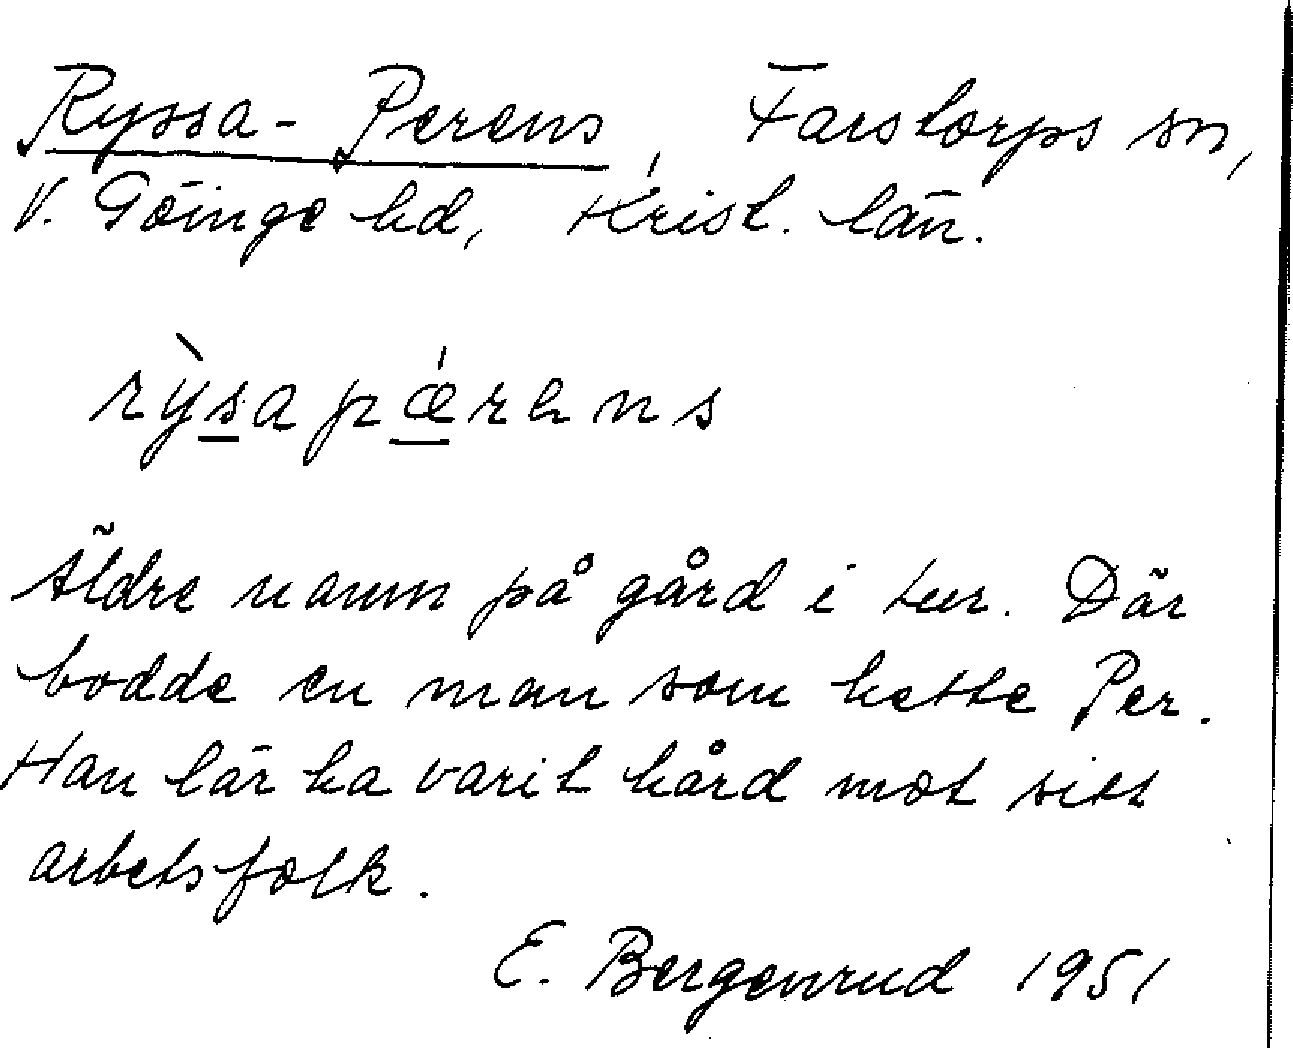 Ryssa-Perens, Farstorps sn,
V. Göinge hd, Krist. län.
rỳsapǽrens
Äldre namn på gård i Lur. Där
bodde en man som hette Per.
Han lär ha varit hård mot sitt
arbetsfolk.
E. Bergenrud 1951